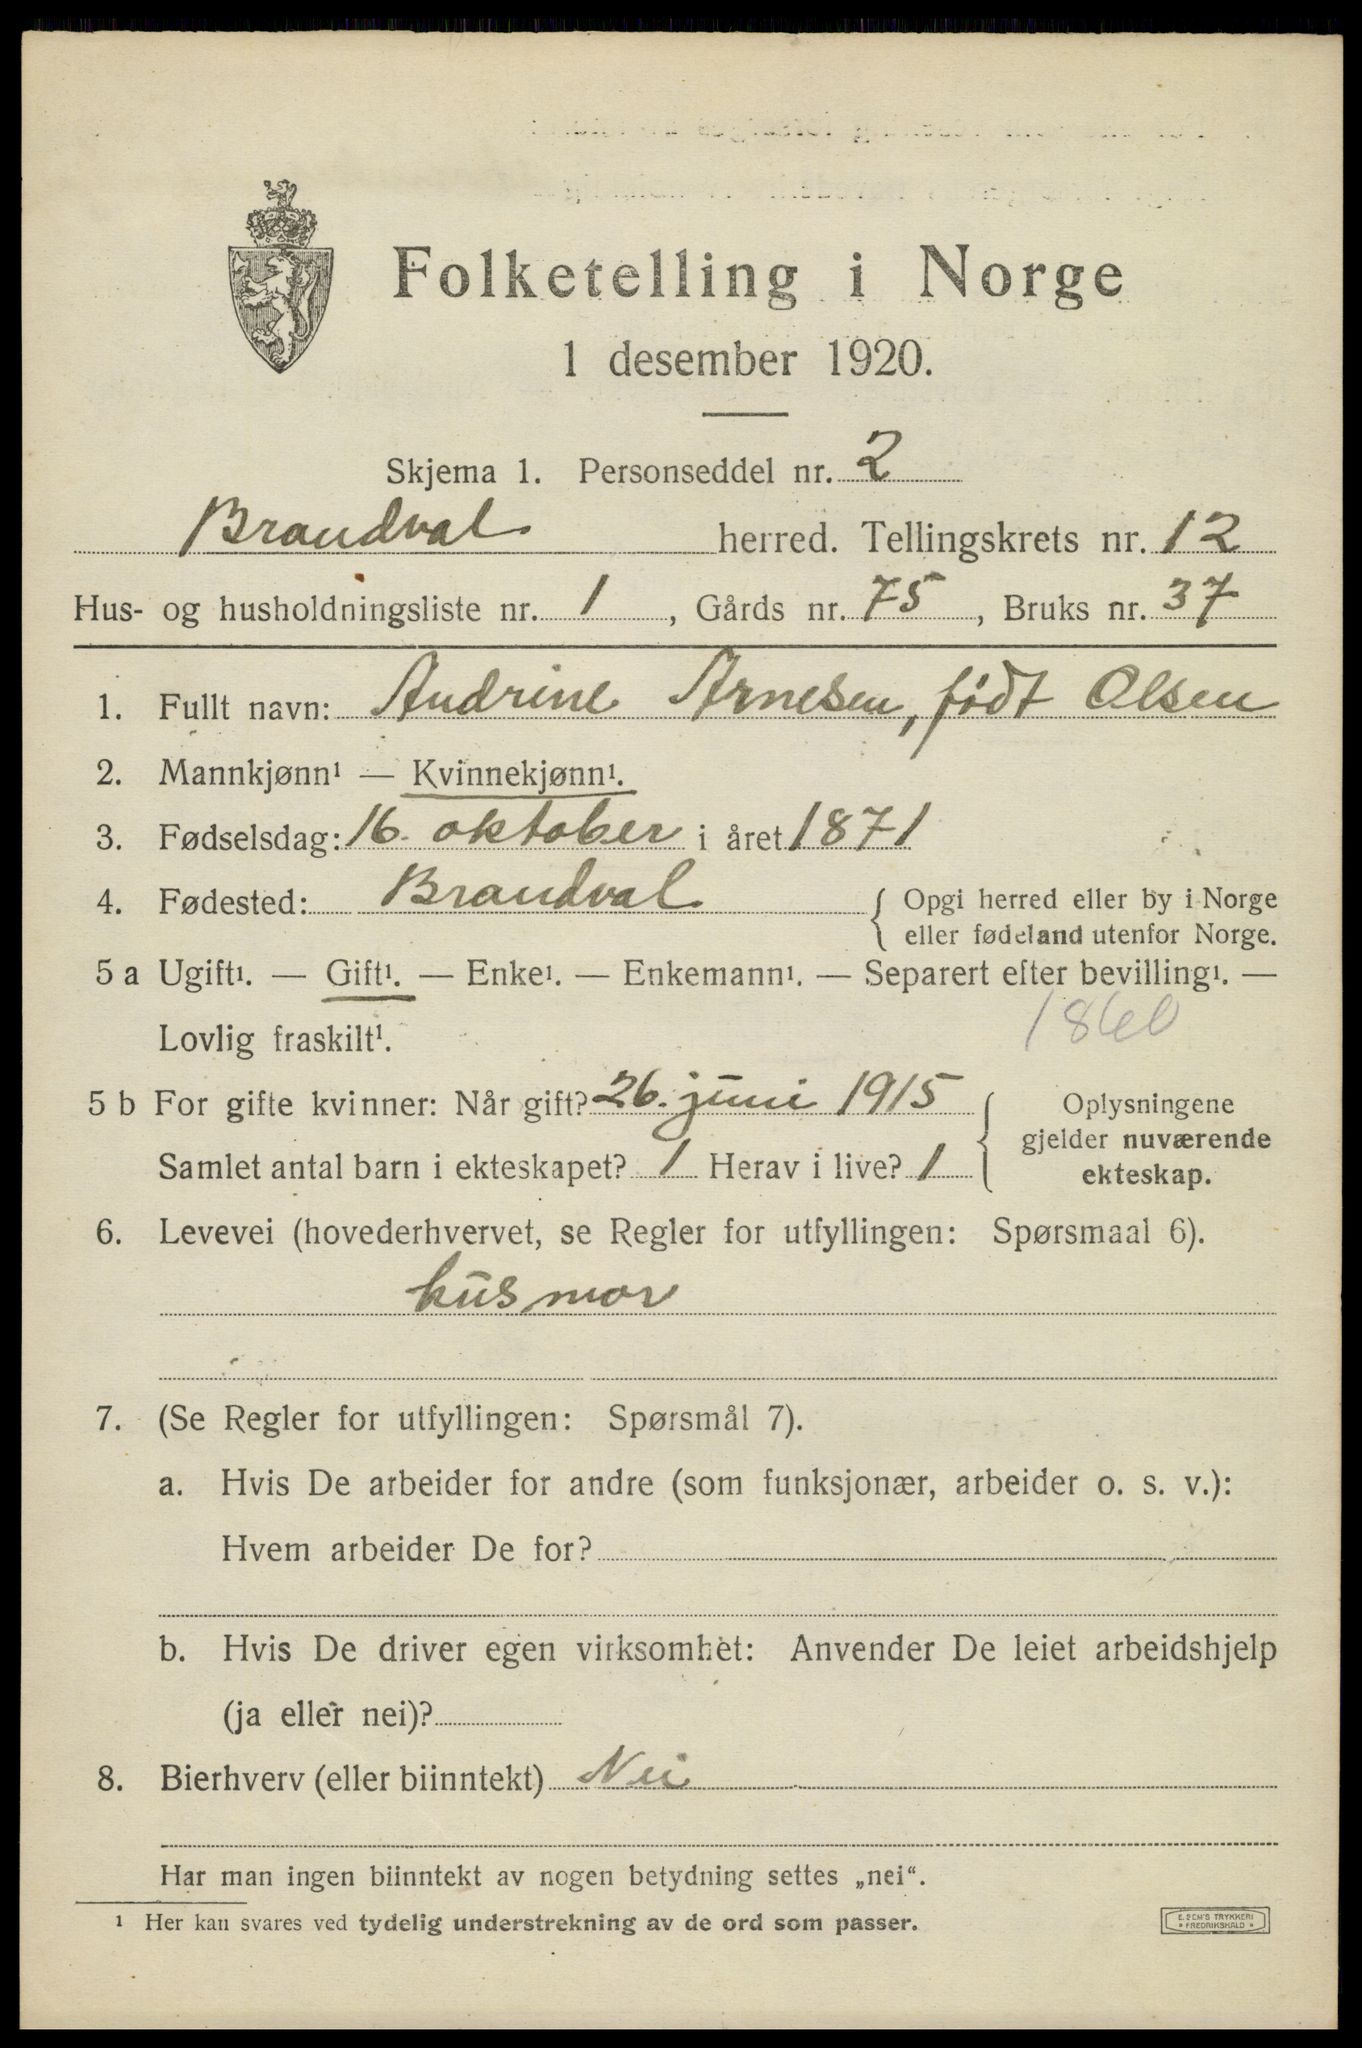 Folketelling i Norge
1 desember 1920.
Skjema 1. Personseddel nr. 2
Brandval herred. Tellingskrets nr. 12
Hus- og husholdningsliste nr. 1, Gårds nr. 75, Bruks nr. 37
1. Fullt navn: Andrine Arnesen, født Olsen
2. Mannkjønn¹ — Kvinnekjønn¹.
3. Fødselsdag: 16. oktober i året 1871
4. Fødested: Brandval { Opgi herred eller by i Norge
eller fødeland utenfor Norge.
5 a Ugift¹. — Gift¹. — Enke¹. — Enkemann¹. — Separert efter bevilling¹. —
Lovlig fraskilt¹. 1860
5 b For gifte kvinner: Når gift? 26. juni 1915
Samlet antal barn i ekteskapet? 1 Herav i live? 1
Oplysningene
gjelder nuværende
ekteskap.
6. Levevei (hovederhvervet, se Regler for utfyllingen: Spørsmaal 6).
husmor
7. (Se Regler for utfyllingen: Spørsmål 7).
a. Hvis De arbeider for andre (som funksjonær, arbeider o. s. v.):
Hvem arbeider De for?
b. Hvis De driver egen virksomhet: Anvender De leiet arbeidshjelp
(ja eller nei)?
8. Bierhverv (eller biinntekt) Nei
Har man ingen biinntekt av nogen betydning settes „nei“.
¹ Her kan svares ved tydelig understrekning av de ord som passer.
E. SEM'S TRYKKERI
* FREDRIKSHALD *